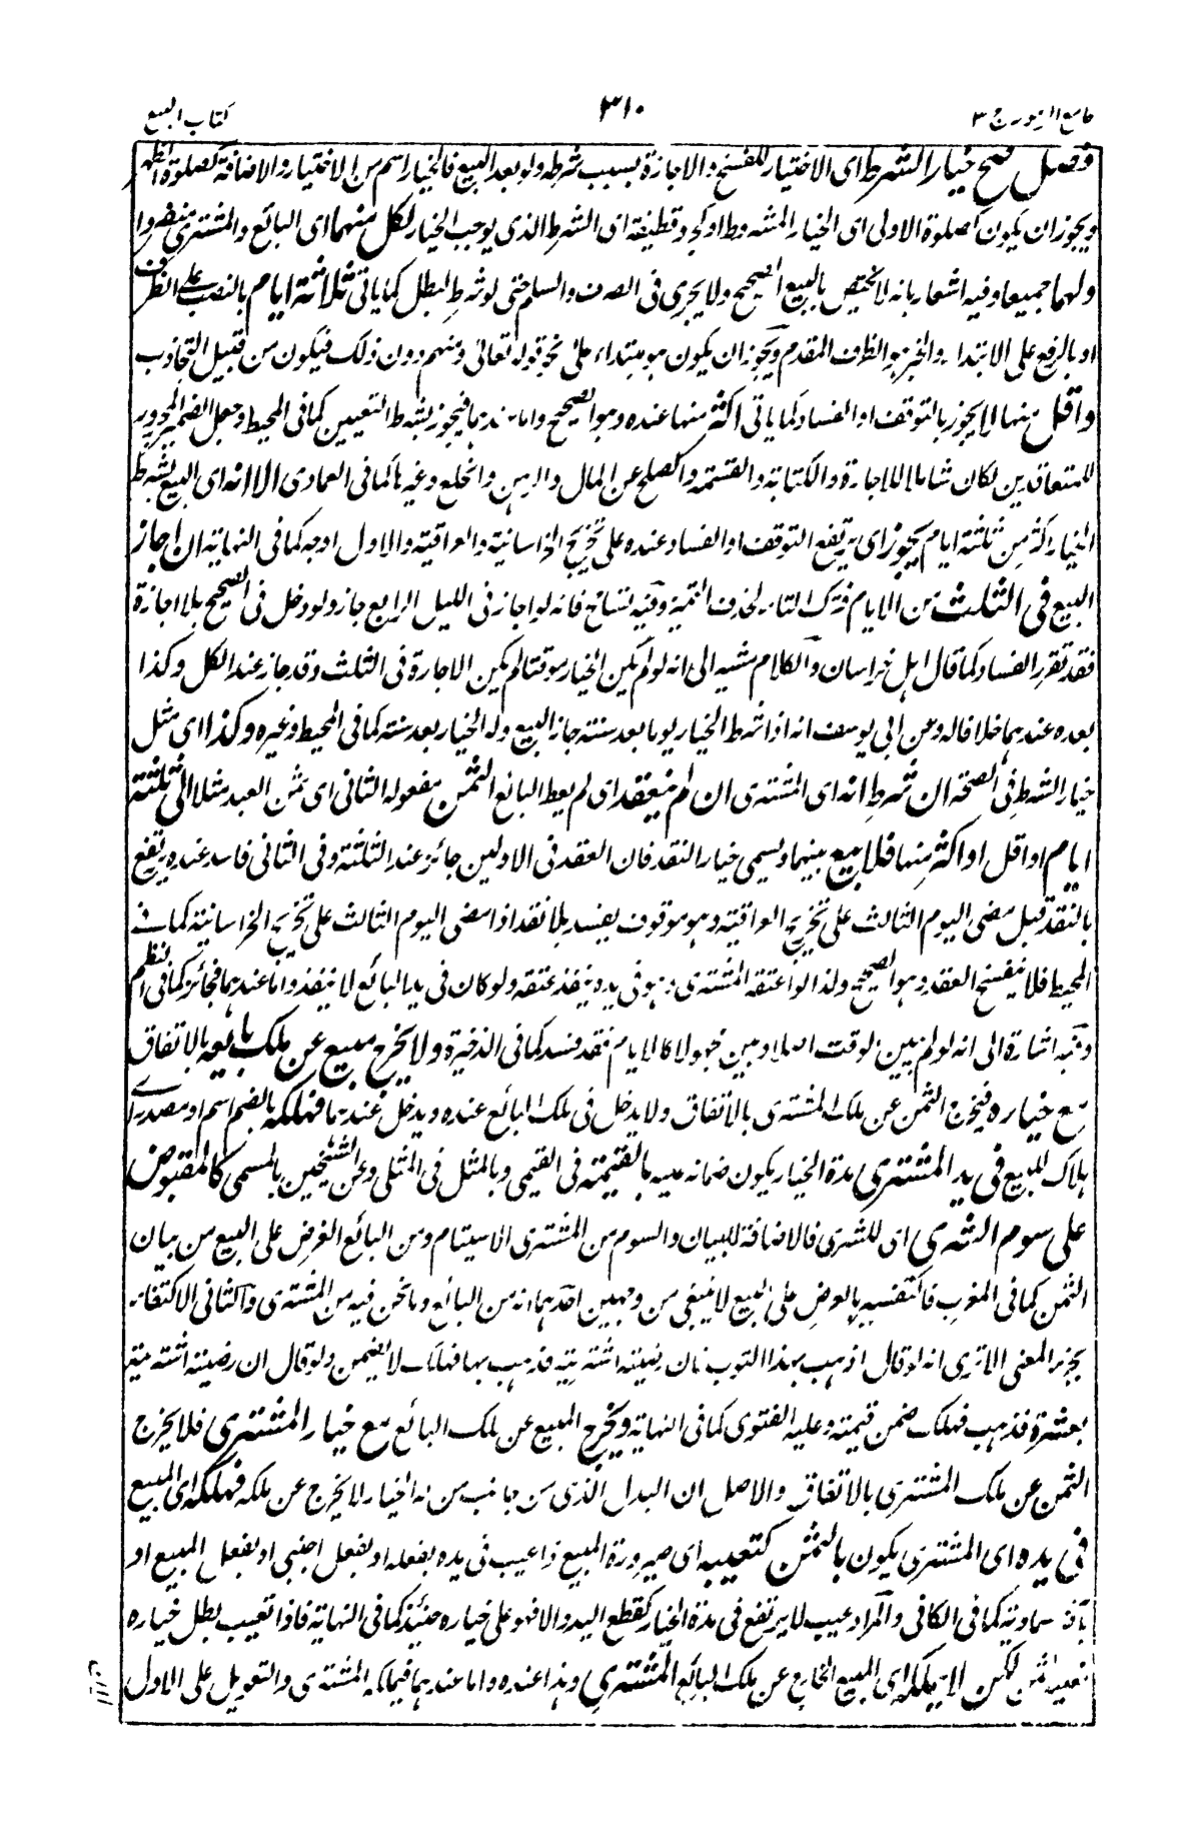 جامع الرموز ج ٣
٣١٠
كتاب البيع
فصل صح خيار الشرط اى الاختيار للفسخ والاجازة بسبب شرطه ولو بعد البيع فالخيار اسم من الاختيار والاضافة كصلوة الظهر
ويجوز ان يكون كصلوة الاولى اى الخيار المشروط او كجرد قطيفة اى الشرط الذى يوجب الخيار لكل منهما اى البائع والمشترى منفردا
ولهما جميعا وفيه اشعار بانه لا يختص بالبيع الصحيح ولا يجرى فى الصرف والسلم حتى لو شرط لبطل كما ياتى ثلاثة ايام بالنصب على الظرف
او بالرفع على الابتداء والخبر هو الظرف المقدم ويجوز ان يكون هو مبتداء على نحو قوله تعالى ومنهم دون ذلك فيكون من قبيل التجاذب
واقل منها لا يجوز بالتوقف او الفساد كما ياتى اكثر منها عنده وهو الصحيح واما عندهما فيجوز بشرط التعيين كما فى المحيط وجعل الضمير المجرور
للمتعاقدين لكان شاملا للاجارة والكتابة والقسمة والصلح عن المال والرهن والخلع وغيرها كما فى العمادى الا انه اى البيع بشرط
الخيار اكثر من ثلثة ايام يجوز اى يرتفع التوقف او الفساد عنده على تخريج الخراسانية والعراقية والاول اوجه كما فى النهاية ان اجاز
البيع فى الثلث من الايام فترك التاء لحذف التميز وفيه تسامح فانه لو اجاز فى الليل الرابع جاز ولو دخل فى الصحيح بلا اجازة
فقد تقرر الفساد كما قال اهل خراسان والكلام مشير الى انه لو لم يكن الخيار موقتا لم يكن الاجازة فى الثلث وقد جاز عند الكل وكذا
بعده عندهما خلافا له وعن ابى يوسف انه اذا شرط الخيار يوما بعد سنته جاز البيع وله الخيار بعد سنته كما فى المحيط وغيره وكذا اى مثل
خيار الشرط فى الصحة ان شرط انه اى المشترى ان لم ينقد اى لم يعط البائع الثمن مفعوله الثانى اى ثمن العبد مثلا الى ثلثة
ايام او اقل او اكثر منها فلا بيع بينهما ويسمى خيار النقد فان العقد فى الاولين جائز عند الثلثة وفى الثانى فاسد عنده يرتفع
بالنقد قبل مضى اليوم الثالث على تخريج العراقية وهو موقوف يفسد بلا نقد اذا مضى اليوم الثالث على تخريج الخراسانية كما فى
المحيط فلا ينفسخ العقد وهو الصحيح ولذا لو اعتقه المشترى وهو فى يده ينفذ عتقه ولو كان فى يد البائع لا ينفذ واما عندهما فجائز كما فى النظم
وفيه اشارة الى انه لو لم يبين الوقت اصلا او بين مجهولا كالايام فقد فسد كما فى الذخيرة ولا يخرج مبيع عن ملك بائعه بالاتفاق
مع خياره فيخرج الثمن عن ملك المشترى بالاتفاق ولا يدخل فى ملك البائع عنده ويدخل عندهما فهلكه بالضم اسم او مصدر اى
هلاك المبيع فى يد المشترى مدة الخيار يكون ضمانه عليه بالقيمة فى القيمى وبالمثل فى المثلى وعن الشيخين بالمسمى كالمقبوض
على سوم الشرى اى للشرى فالاضافة للبيان والسوم من المشترى الاستيام ومن البائع العرض على البيع من بيان
الثمن كما فى المغرب فاكتفسيره بالعرض على البيع لا ينبغى من وجهين احدهما انه من البائع وما نحن فيه من المشترى والثانى الاكتفاء
بجزء المعنى الا ترى انه لو قال اذهب بهذا الثوب فان رضيته اشتريته فذهب بها فهلك لا يضمن ولو قال ان رضيته اشتريته
بعشرة فذهب فهلك ضمن قيمته وعليه الفتوى كما فى النهاية ويخرج المبيع عن ملك البائع مع خيار المشترى فلا يخرج
الثمن عن ملك المشترى بالاتفاق والاصل ان البدل الذى من جانب من له الخيار لا يخرج عن ملكه فهلكه اى المبيع
فى يده اى المشترى يكون بالثمن كتعيبه اى صيرورة المبيع ذا عيب فى يده بفعله او بفعل اجنبى او بفعل المبيع او
بآفة سماوية كما فى الكافى والمراد عيب لا يرتفع فى مدة الخيار كقطع اليد والا فهو على خياره حينئذ كما فى النهاية فاذا تعيب بطل خياره
الثمن لكن لا يملكه اى المبيع الخارج عن ملك البائع المشترى وهذا عنده واما عندهما فيملكه المشترى والتعويل على الاول